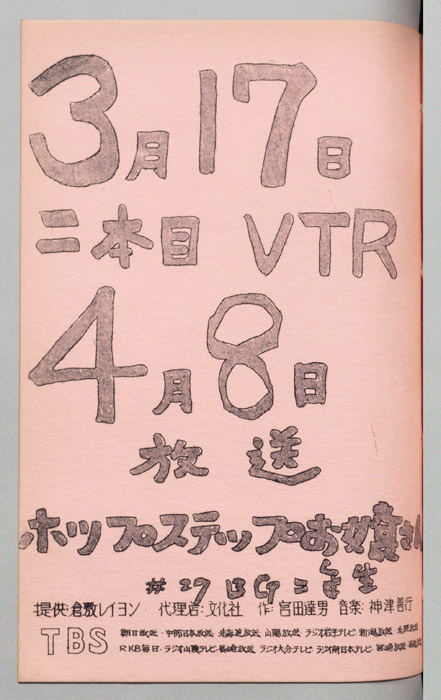 3月17日
二本目 VTR
4月8日
放送
ホップステップお嬢さん
#27 BG二年生
提供・倉敷レイヨン 代理店:文化社 作:宮田達男 音楽:神津善行
TBS
朝日放送・中部日本放送・北海道放送・山陽放送・ラジオ岩手テレビ・新潟放送・
RKB毎日・ラジオ山陰テレビ・長崎放送・ラジオ大分テレビ・ラジオ南日本テレビ・宮崎放送・